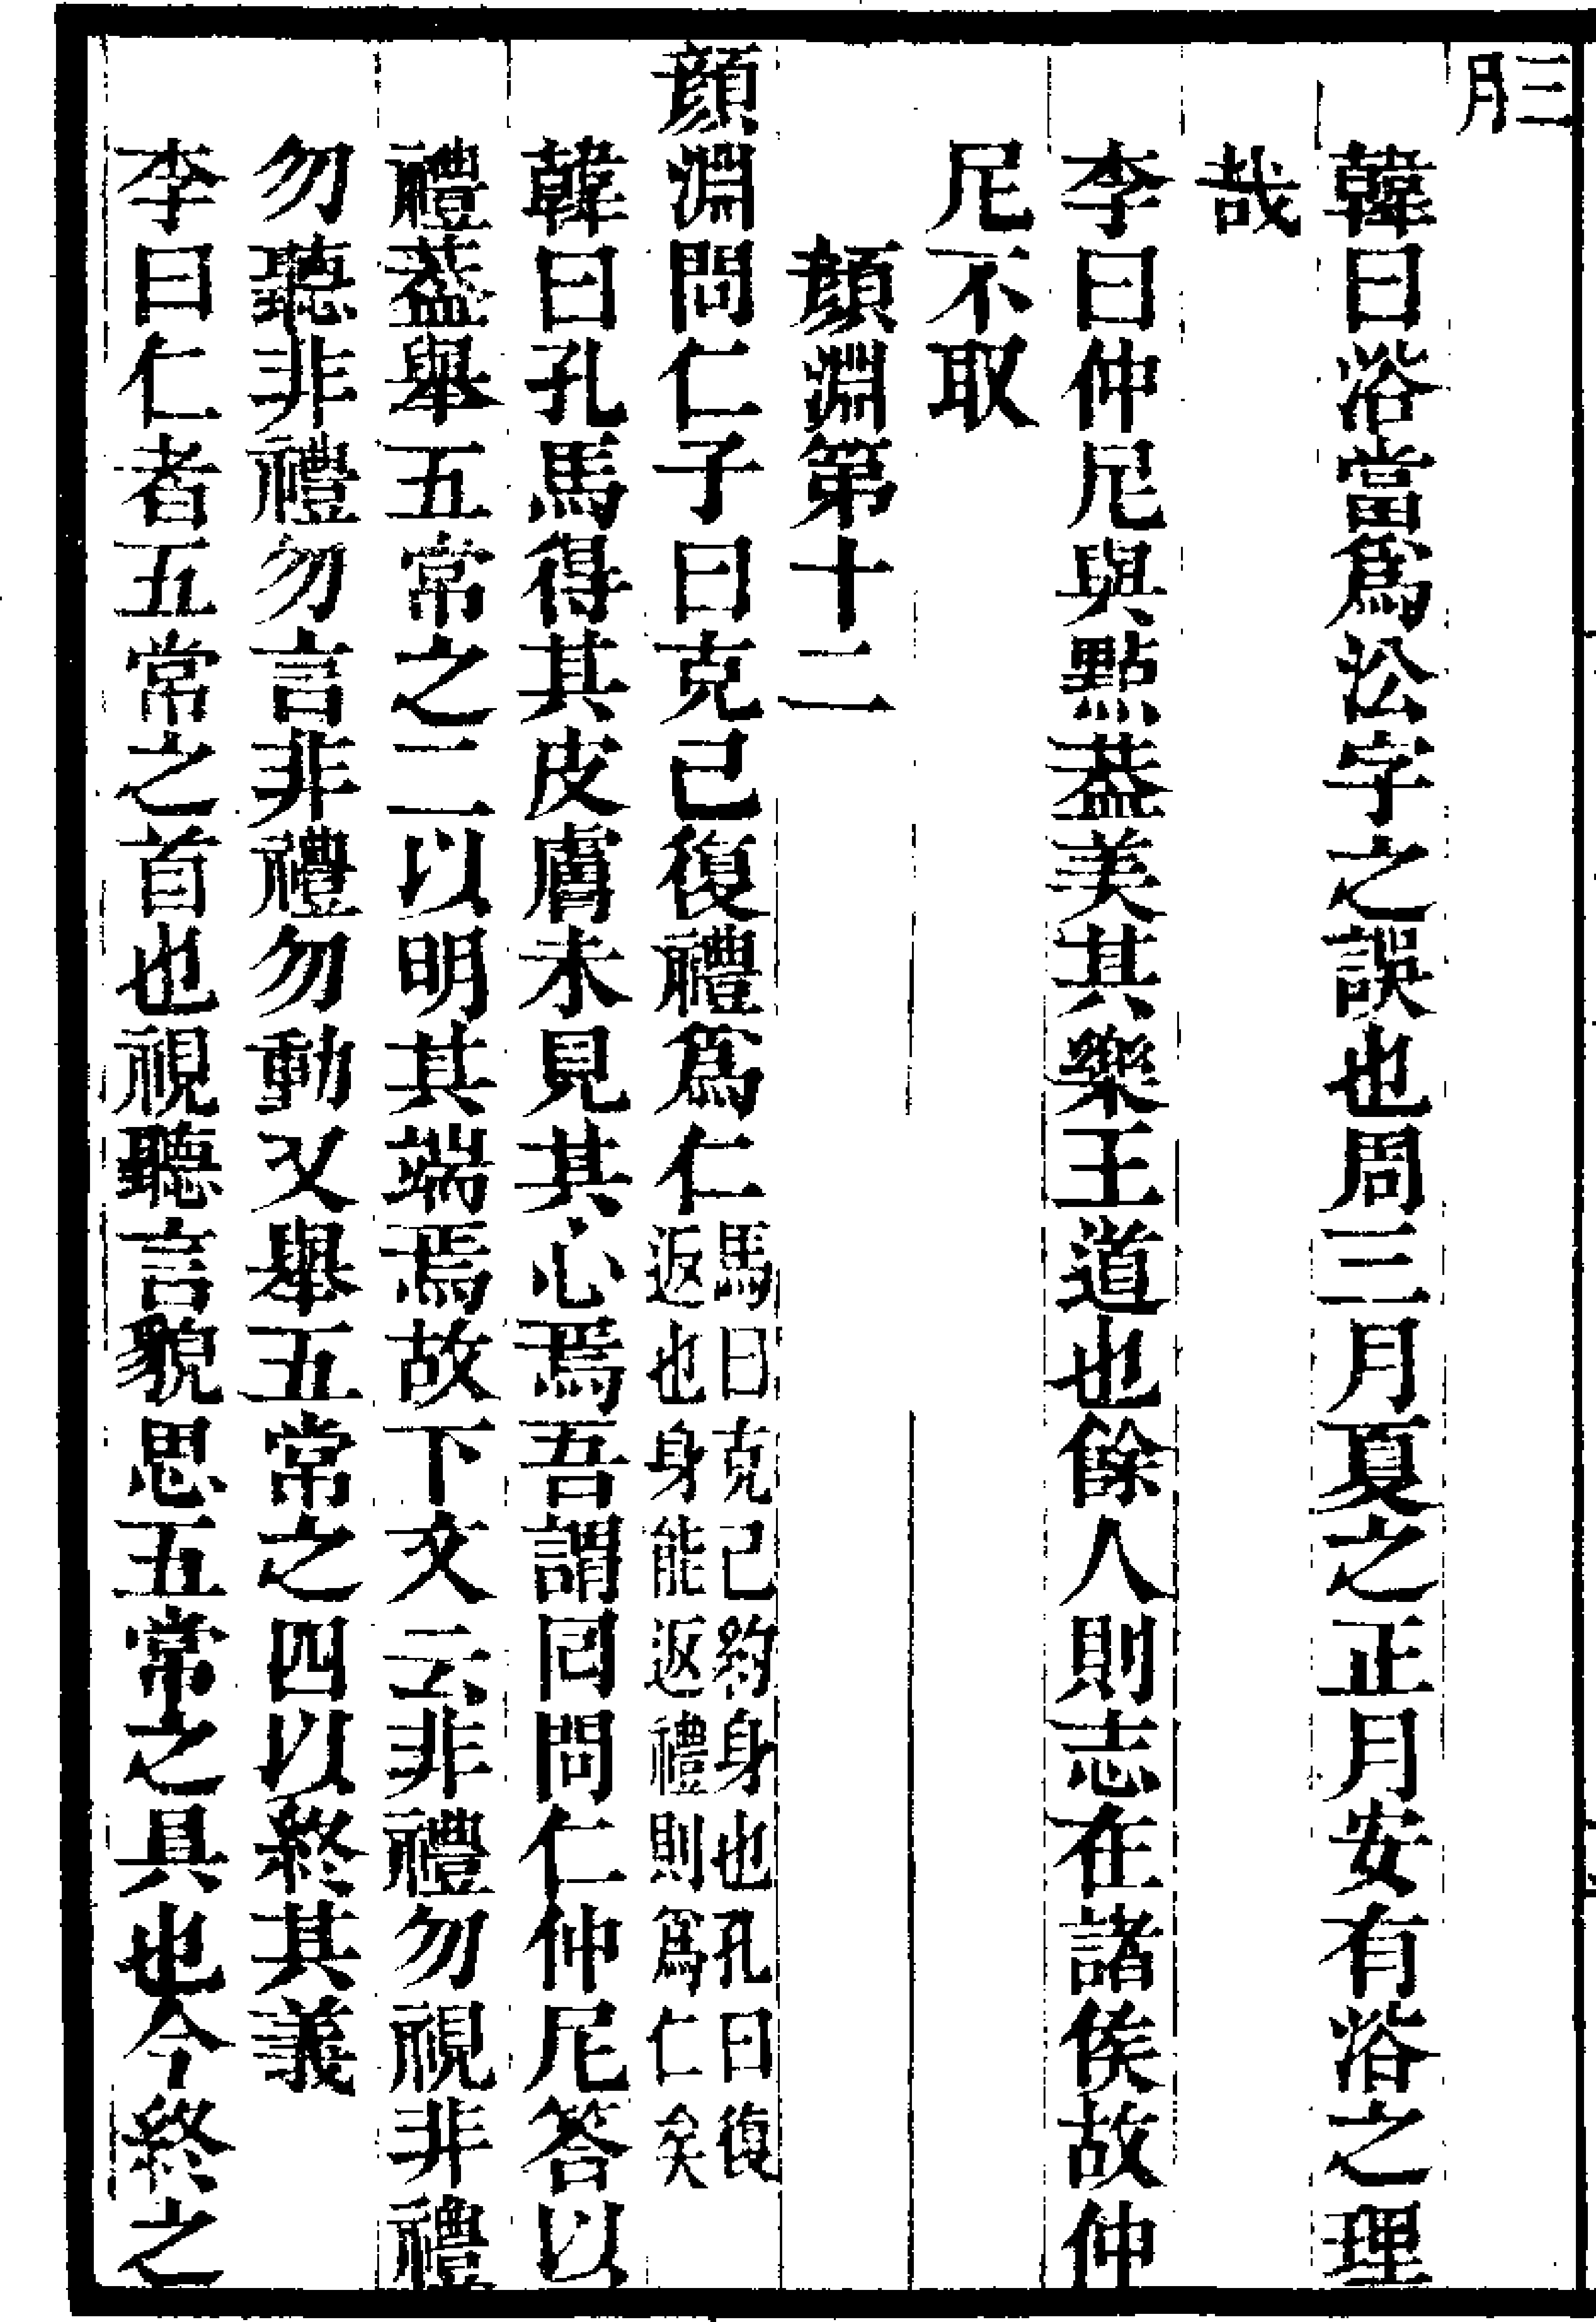 三
月
韓曰浴當爲沿字之誤也周三月夏之正月安有浴之理
哉
李曰仲尼與點葢美其樂王道也餘人則志在諸侯故仲
尼不取
顔淵第十二
顔淵問仁子曰克己復禮爲仁馬曰克己約身也孔曰復
返也身能返禮則爲仁矣
韓曰孔馬得其皮膚未見其心焉吾謂回問仁仲尼答以
禮葢舉五常之二以明其端焉故下文云非禮勿視非禮
勿聽非禮勿言非禮勿動又舉五常之四以終其義
李曰仁者五常之首也視聽言貌思五常之具也今終之